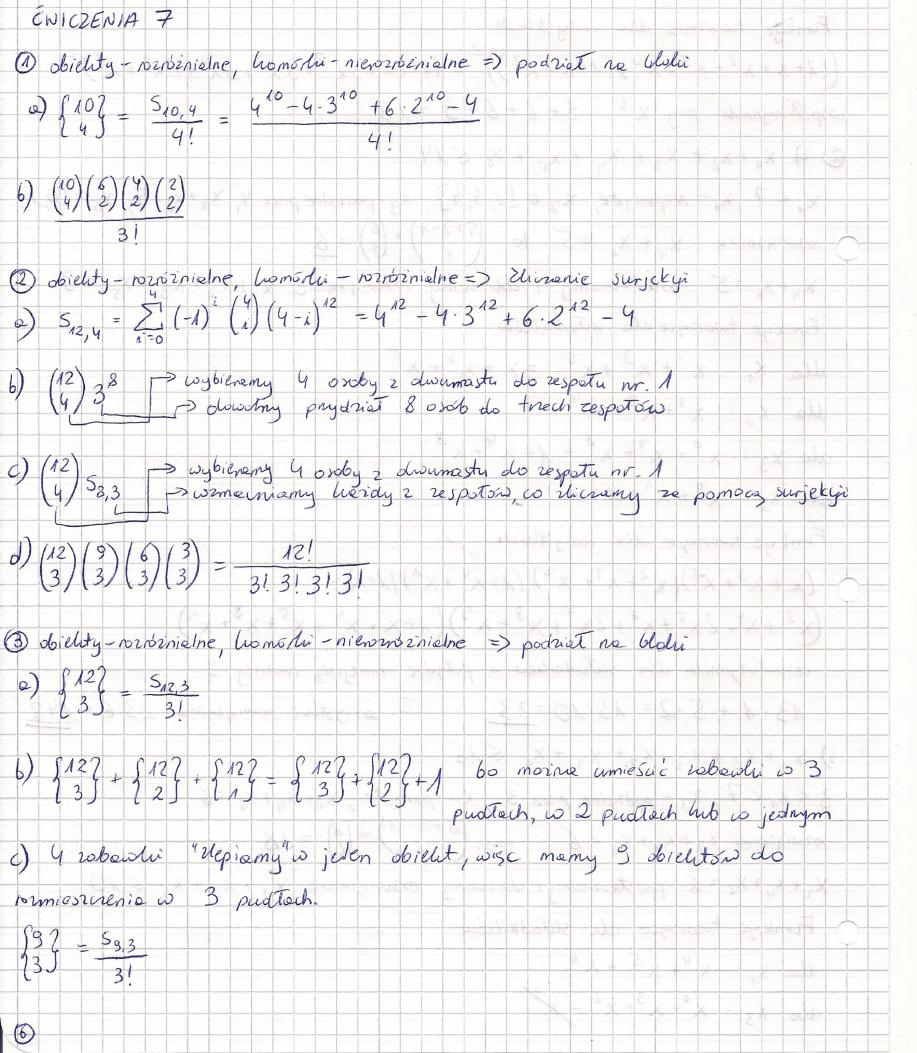 ĆWICZENIA 7
① obiekty-rozróżnialne, komórki-nierozróżnialne => podział na bloki
a) {10 4} = S10,4 / 4! = (4^10 - 4·3^10 + 6·2^10 - 4) / 4!
b) (10 4)(6 2)(4 2)(2 2) / 3!
② obiekty-rozróżnialne, komórki-rozróżnialne => zliczanie surjekcji
a) S12,4 = Σ_{i=0}^{4} (-1)^i (4 i) (4-i)^12 = 4^12 - 4·3^12 + 6·2^12 - 4
b) (12 4) 3^8 → wybieramy 4 osoby z dwunastu do zespołu nr. 1
→ dowolny przydział 8 osób do trzech zespołów
c) (12 4) S8,3 → wybieramy 4 osoby z dwunastu do zespołu nr. 1
→ wzmacniamy każdy z zespołów, co zliczamy za pomocą surjekcji
d) (12 3)(9 3)(6 3)(3 3) = 12! / 3! 3! 3! 3!
③ obiekty-rozróżnialne, komórki-nierozróżnialne => podział na bloki
a) {12 3} = S12,3 / 3!
b) {12 3} + {12 2} + {12 1} = {12 3} + {12 2} + 1 bo można umieścić zabawki w 3
pudłach, w 2 pudłach lub w jednym
c) 4 zabawki "zlepiamy" w jeden obiekt, więc mamy 9 obiektów do
rozmieszczenia w 3 pudłach.
{9 3} = S9,3 / 3!
⑥